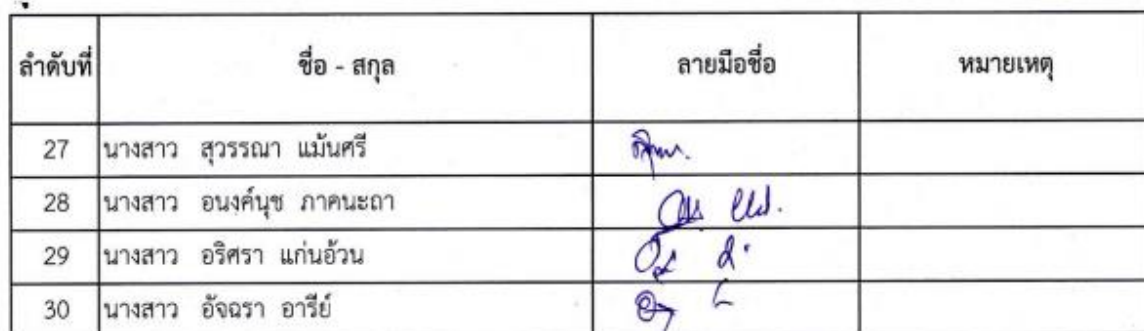 ลำดับที่ ชื่อ - สกุล ลายมือชื่อ หมายเหตุ
27 นางสาว สุวรรณา แม้นศรี
28 นางสาว อนงค์นุช ภาคนะถา
29 นางสาว อริศรา แก่นอ้วน
30 นางสาว อัจฉรา อารีย์